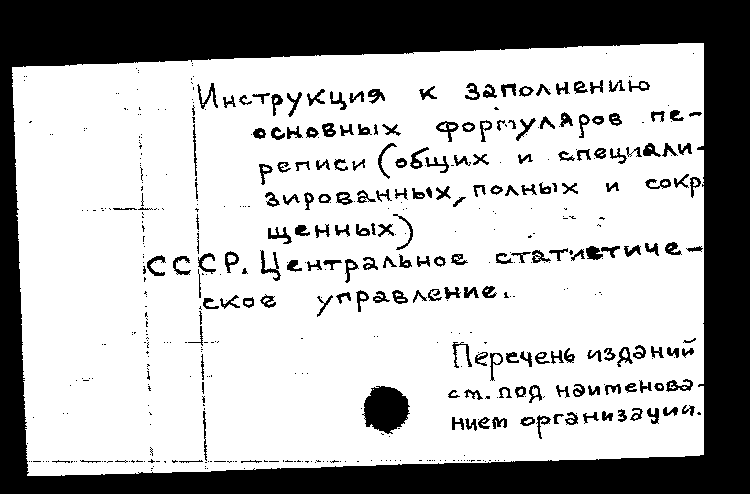 Инструкция к заполнению
основных формуляров пе-
реписи (общих и специали-
зированных, полных и сокр
щенных)
СССР. Центральное статистиче-
ское управление.
Перечень изданий
см. под наименова-
нием организации.